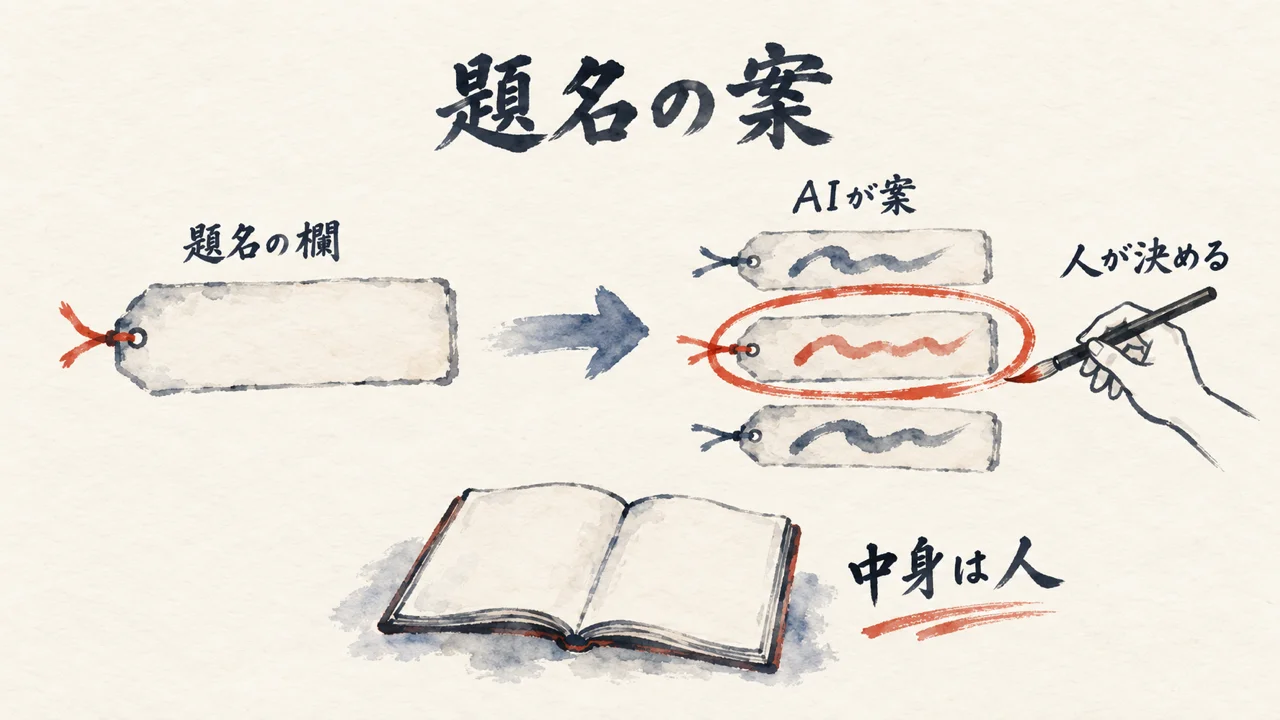 題名の案
題名の欄
AIが案
人が決める
中身は人